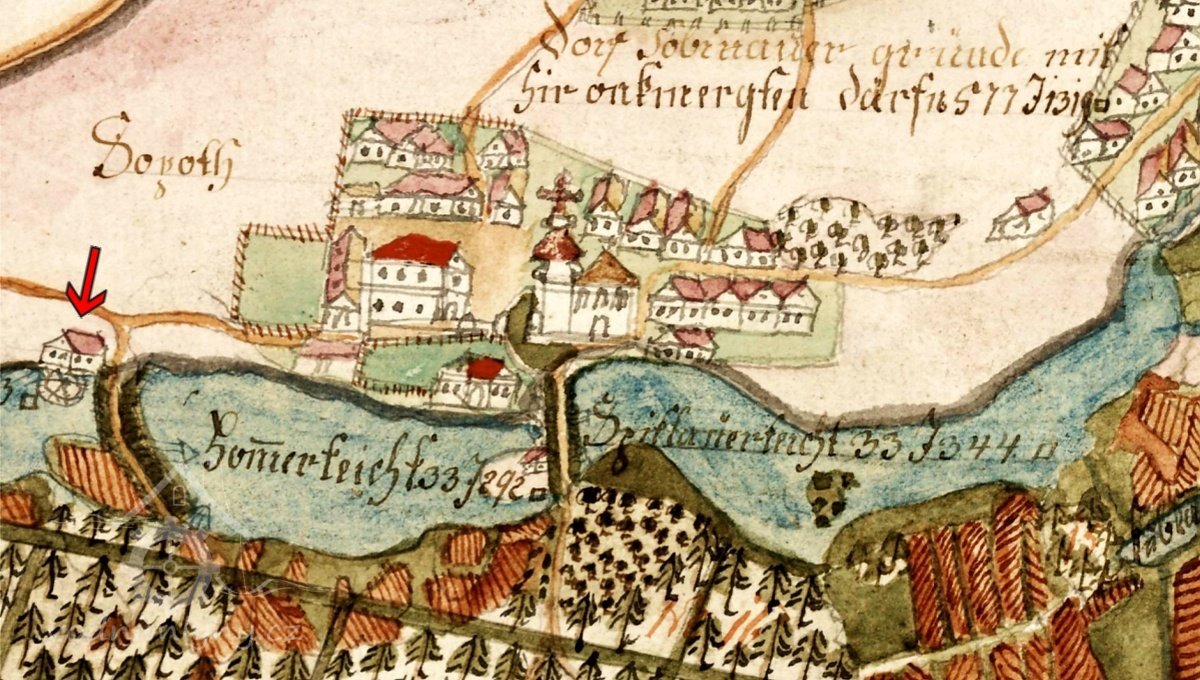 Dorf Sobenauer gründe mit
hir onkmergten därfn 577 J 1319
Sopoth
Homerteicht 33 J 292
Spitlauerteicht 33 J 344